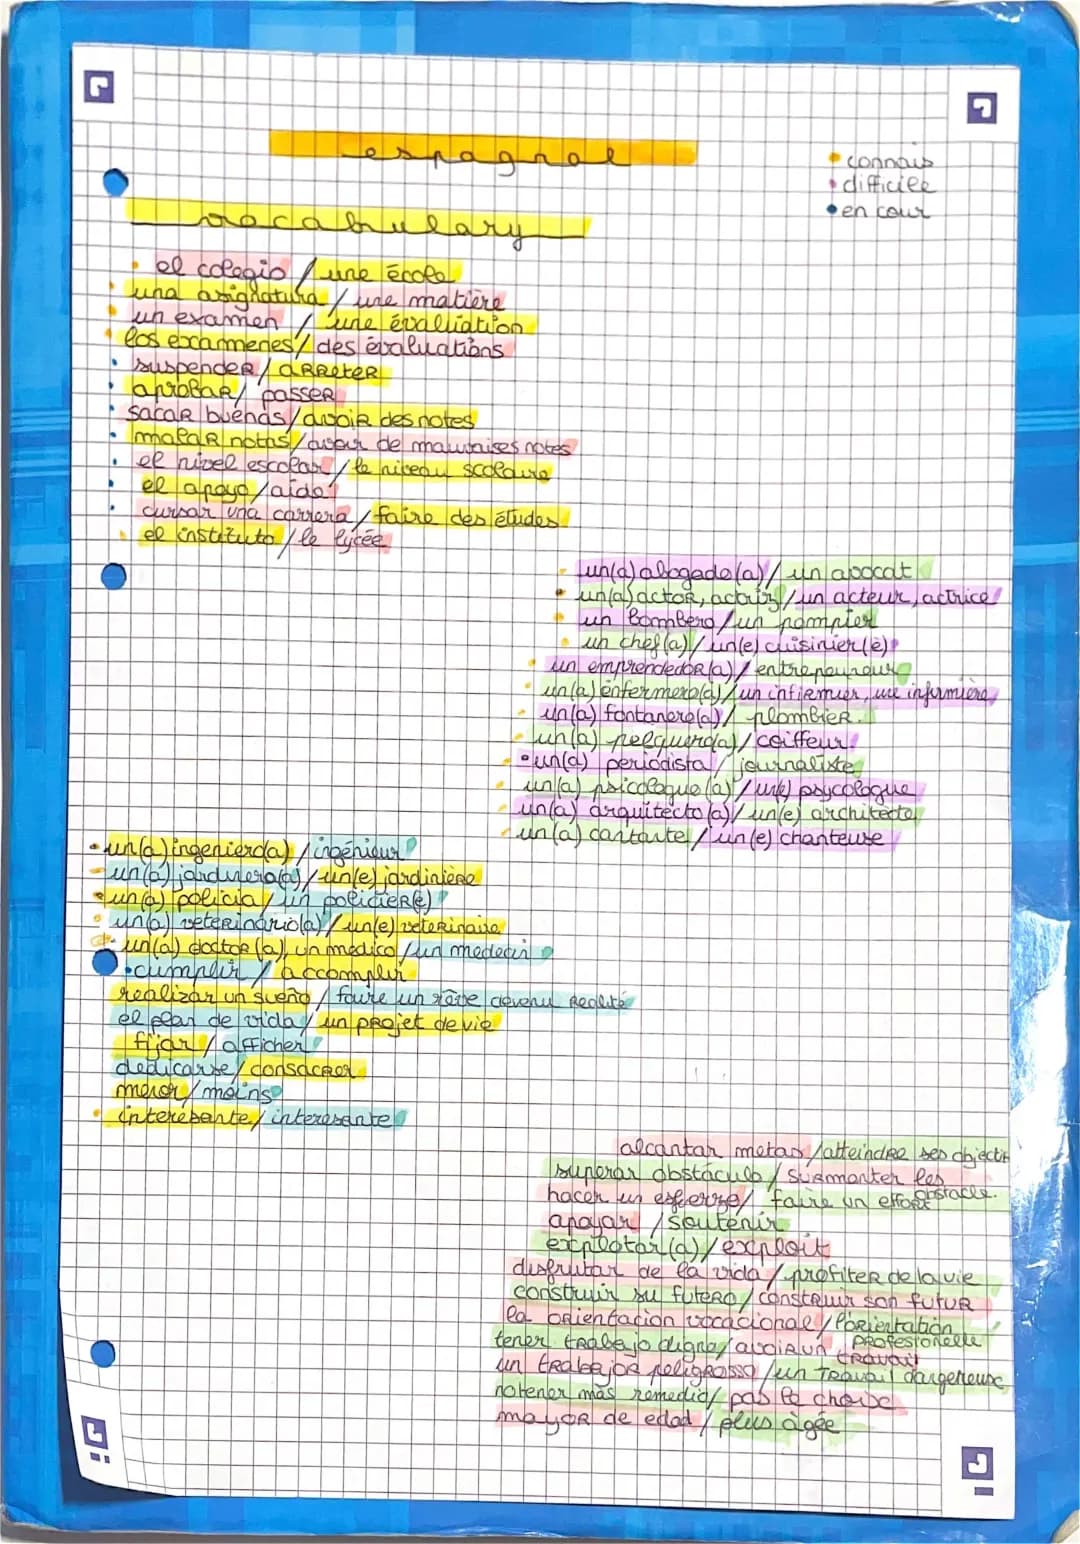 espagnol
• connais
• difficile
• en cour
vocabulary
el colegio / une école
una asignatura / une matière
un examen / une évaluation
los exammenes / des évaluations
suspender / arreter
aprobar / passer
sacar buenas / avoir des notes
malar notas / avoir de mauvaises notes
el nivel escolar / le niveau scolaire
el apoyo / aide
cursar una carrera / faire des études
el instituto / le lycée
un(a) abogado(a) / un avocat
un(a) actor, actriz / un acteur, actrice
un bombero / un pompier
un chef(a) / un(e) cuisinier(è)
un emprendedor(a) / entrepeuneur
un(a) enfermero(a) / un infirmier, une infirmière
un(a) fontanero(a) / plombier
un(a) pelquero(a) / coiffeur
un(a) periodista / journaliste
un(a) psicologue(a) / un(e) psycologue
un(a) arquitecto(a) / un(e) architecte
un(a) cantante / un(e) chanteuse
un(a) ingeniero(a) / ingénieur
un(a) jardinero(a) / un(e) jardinière
un(a) policia / un policier(è)
un(a) veterinario(a) / un(e) veterinaire
un(a) doctor(a), un medico / un medecin
cumplir / accomplir
realizar un sueño / faire un rêve devenu realité
el plan de vida / un projet de vie
fijar / afficher
dedicarse / consacrer
menor / moins
interesante / interesante
alcantar metas / atteindre ses objectif
superar obstáculo / surmonter les obstacle.
hacer un esfuerzo / faire un effort
apoyar / soutenir
explotar(a) / exploit
disfrutar de la vida / profiter de la vie
construir su futero / construir son futur
la orientaciòn vocacional / l'orientation profesionelle
tener trabajo digno / avoir un travail
un trabajor peligrosso / un travail dangereuse
notener más remedio / pas le choix
mayor de edad / plus àgée